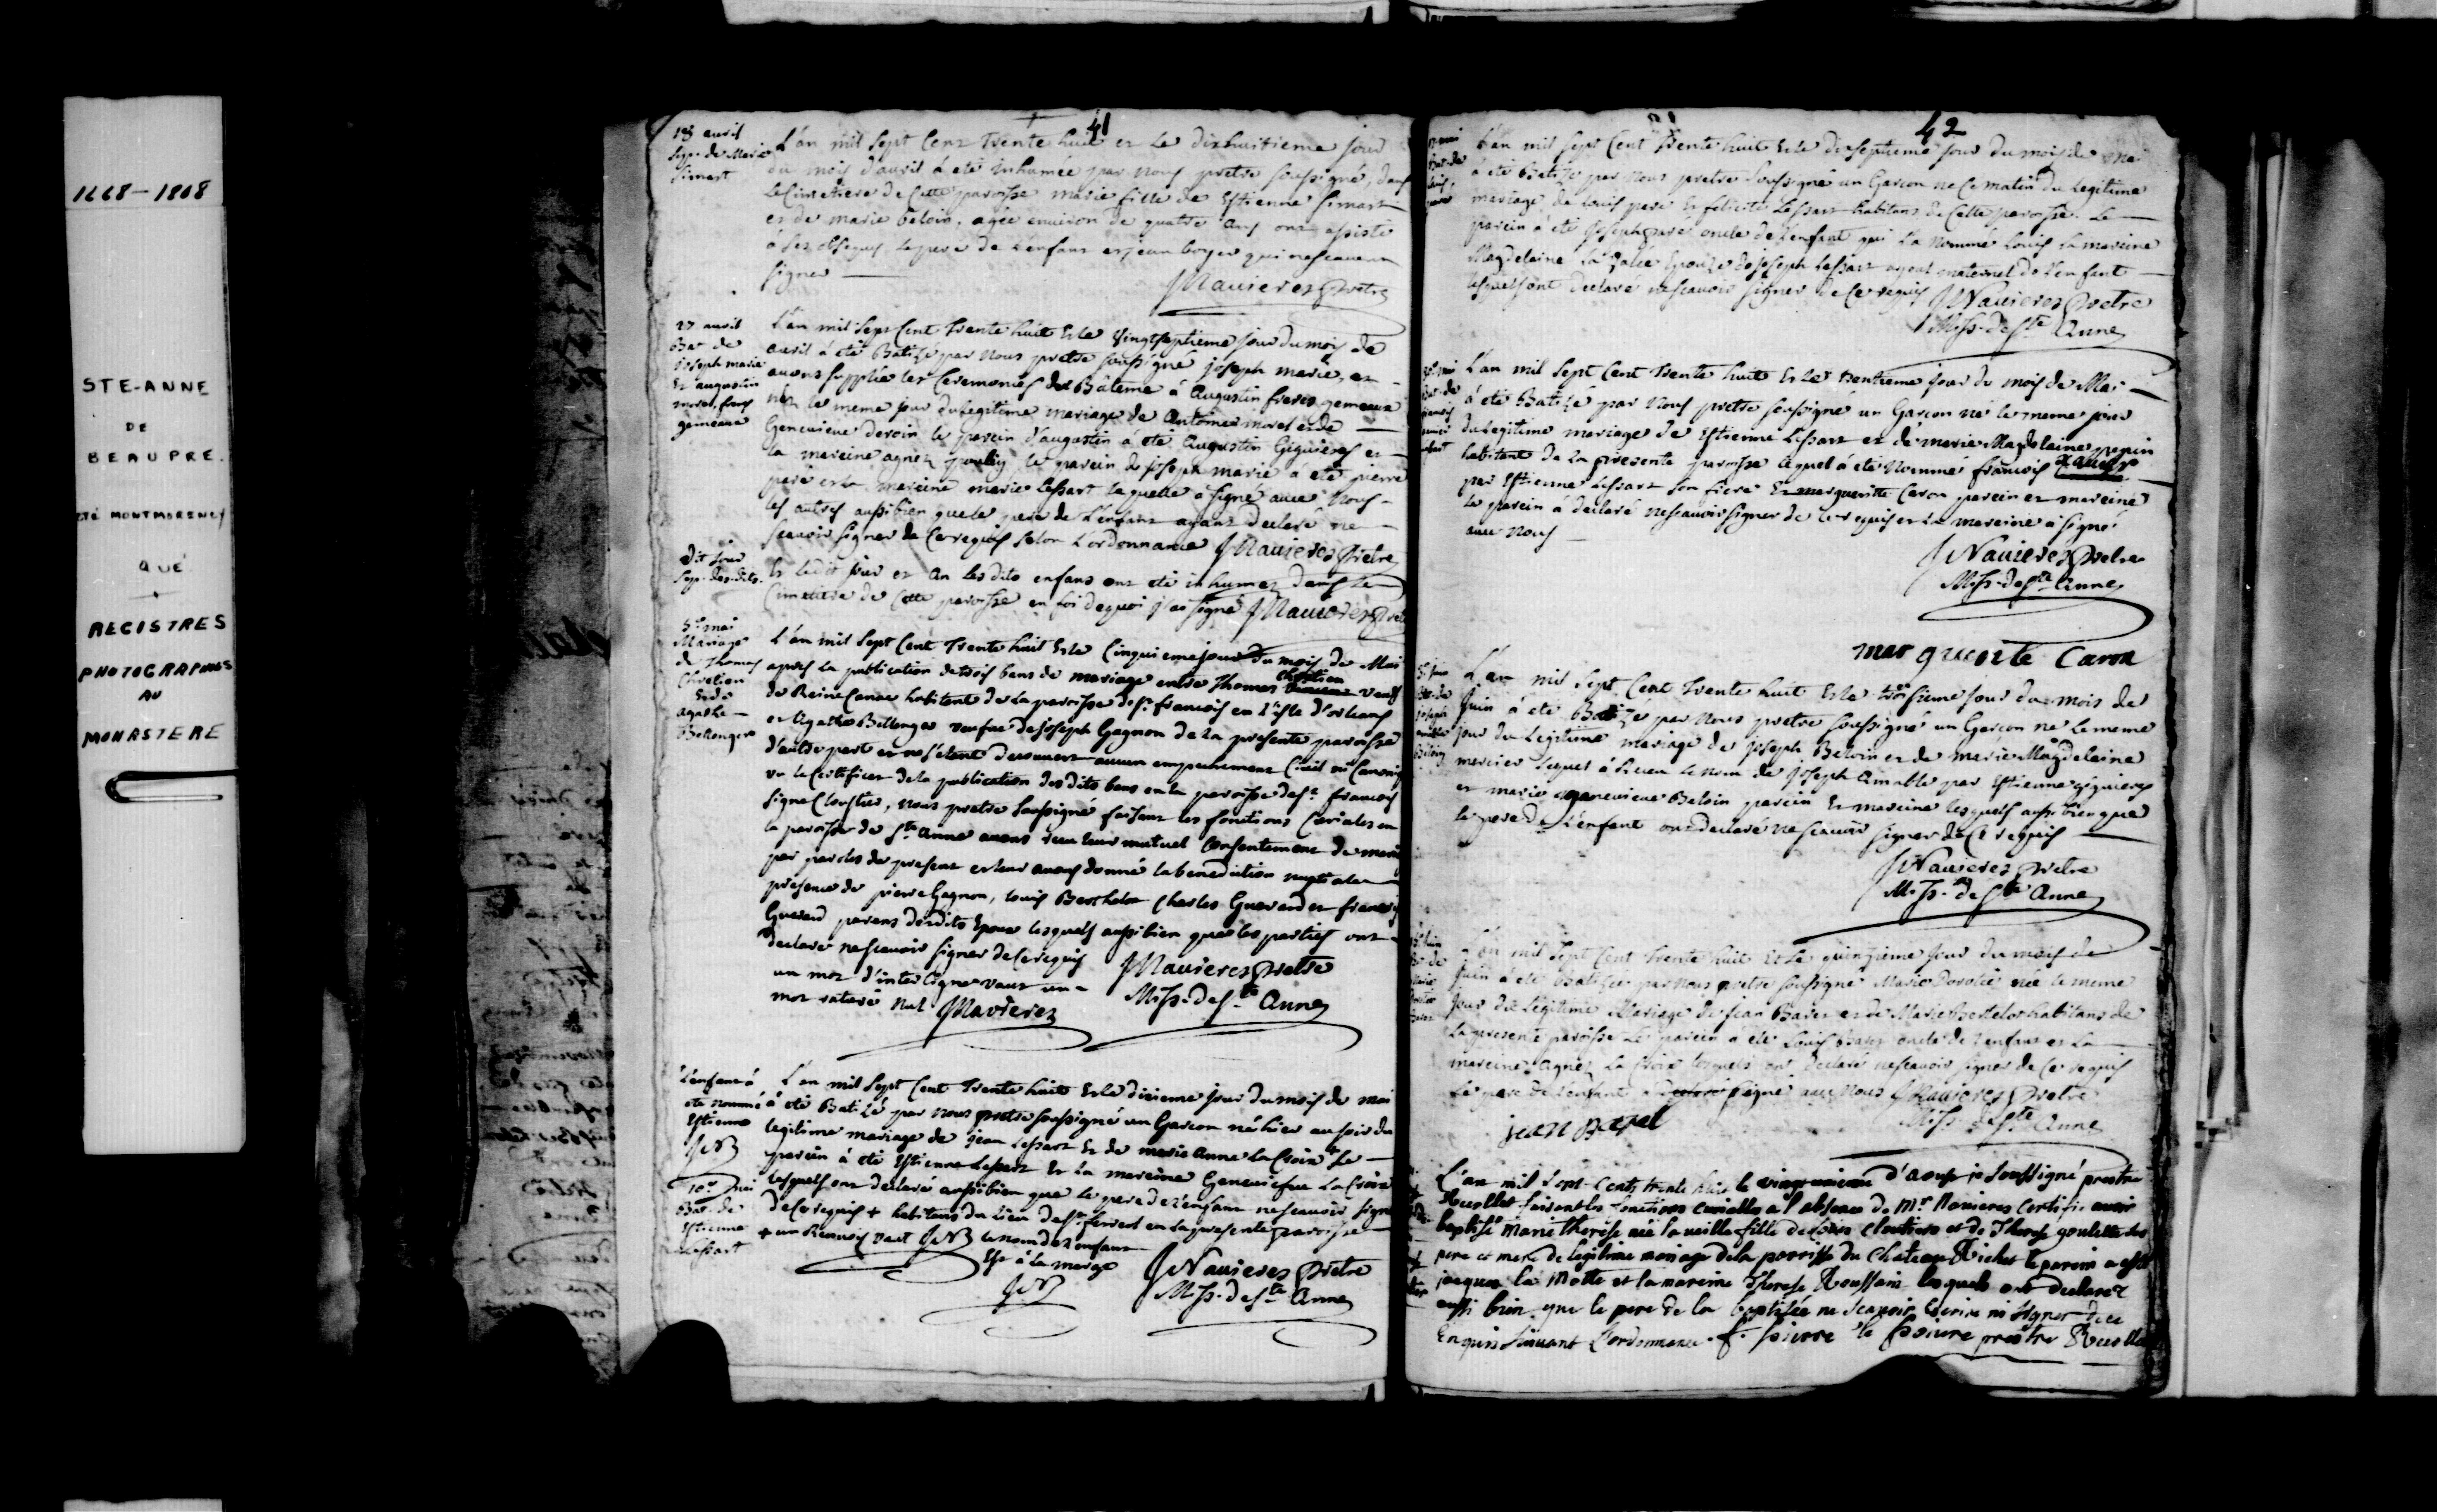 1668-1808
STE-ANNE
DE
BEAUPRE.
CTÉ MONTMORENCY
QUÉ.
REGISTRES
PHOTOGRAPHIÉS
AU
MONASTERE
41
18 avril
Sep. de Marie
Simart
L'an mil sept cent trente huit et le dixhuitieme jour
du mois d'avril à été inhumée par nous pretre soussigné, dans
le cimetiere de cette paroisse marie fille de Estienne Simart
et de marie beloin, agée environ de quatre ans ont assisté
à ses obseques le pere de l'enfant et jean boyer qui ne scavent
signer
Navieres Pretre
27 avril
Bat. de
joseph marie
et augustin
morel, freres
gemeaux
L'an mil sept cent trente huit et le vingtseptieme jour du mois de
avril à été Batizé par nous pretre soussigné joseph marie, et
avons supplée les ceremonies du Bâteme à Augustin freres gemeaux
nés le meme jour du legitime mariage de Antoine morel et de
Genevieve deroin le parein d'augustin à été Augustin Giguieres et
la mareine agnez poulin le parein de joseph marie a été pierre
paré et la mareine marie Lessart laquelle a signé avec nous
les autres aussibien que le pere de l'enfant ayant declaré ne
scavoir signer de ce requis selon l'ordonnance JNavieres Pretre
Dit jour
Sep. des dits
Et ledit jour et an lesdits enfans ont été inhumez dans le
Cimetiere de cette paroisse en foi de quoi j'ai signé JNavieres Pretre
5e mai
Mariage
de Thomas
Chretien
et de
agathe
Bellanger
L'an mil sept cent trente huit et le cinquieme jour du mois de Mai
apres la publication de trois bans de mariage entre Thomas chretien veuf
de Reine Canac habitant de la paroisse de St. francois en l'isle d'orleans
et Agathe Bellanger veufve de joseph Gagnon de la presente paroisse
d'autre part et ne s'etant decouvert aucun empechement Civil ou Canoniq
vu le certificat de la publication desdits bans en la paroisse de St. francois
signé Cloustier, nous pretre soussigné faisant les fonctions Curiales en
la paroisse de Ste. anne avons recu leur mutuel consentement de mari
par paroles de present et leur avons donné la benediction nuptiale
presence de pierre Gagnon, louis Berthelot Charles Guerard et francois
Guerard parens desdits Epoux lesquels aussibien que les parties ont
declaré ne scavoir signer de ce requis
un mot d'interligne vaut un
mot raturé nul JNavieres
JNavieres Pretre
Miss. de Ste Anne
L'enfant à
eté nommé
Estienne
JNB
10e mai
Bat. de
Estienne
Lessart
L'an mil sept cent trente huit et le dixieme jour du mois de mai
à été Batizé par nous pretre soussigné un Garcon né hier au soir du
legitime mariage de jean Lessart et de marie anne la Croix Le
parein à été Estienne Lessart et la mareine Genevieve La Croix
lesquels ont declaré aussibien que le pere de l'enfant ne scavoir signer
de ce requis + habitans du lieu de St. ferreol en la presente paroisse
+ un Renvoi vaut JNB le nom de l'enfant
est à la marge
JNB
JNavieres Pretre
Miss. de Ste Anne
42
L'an mil sept cent trente huit et le dixseptieme jour du mois de mai
à été Batizé par nous pretre soussigné un Garcon né ce matin du legitime
mariage de louis paré et felicité Lessart habitans de cette paroisse. Le
parein à été joseph paré oncle de l'enfant qui l'a nommé louis la mareine
Magdelaine Epouze de joseph Lessart ayeul maternel de l'enfant
lesquels ont declaré ne scavoir signer de ce requis JNavieres Pretre
Miss. de Ste Anne
L'an mil sept cent trente huit et le trentieme jour du mois de Mai
à été Batizé par nous pretre soussigné un Garcon né le meme jour
du legitime mariage de Estienne Lessart et de marie Magdelaine pepin
habitant de la presente paroisse lequel à été nommé francois xavier
par Estienne Lessart son frere et margueritte Caron parein et mareine
le parein à declaré ne scavoir signer de ce requis et la mareine à signé
avec nous
JNavieres Pretre
Miss. de Ste Anne
marguerite Caron
L'an mil sept cent trente huit et le troisieme jour du mois de
juin à été Batizé par nous pretre soussigné un Garcon né le meme
jour du legitime mariage de joseph Beloin et de marie Magdelaine
mercier lequel à recu le nom de joseph Amable par Estienne giguieres
et marie genevieve Beloin parein et mareine lesquels aussibien que
le pere de l'enfant ont declaré ne scavoir signer de ce requis
JNavieres Pretre
Miss. de Ste Anne
L'an mil sept cent trente huit et le quinzieme jour du mois de
juin à été Batizée par nous pretre soussigné Marie Dorotée née le meme
jour du legitime Mariage de jean Baret et de Marie bertelot habitans de
la presente paroisse Le parein à été Louis Baret oncle de l'enfant et la
mareine Agnez La Croix lesquels ont declaré ne scavoir signer de ce requis
le pere de l'enfant à signé avec nous JNavieres Pretre
Miss. de Ste Anne
jean Baret
L'an mil sept cents trente huit le vingt d'aoust je soussigné prestre
Recollet faisant les fonctions curialles a l'absence de Mr Navieres certifie avoir
baptisé Marie therese née la veille fille de louis cloutier et de Therese goulette ses
pere et mere de legitime mariage de la parroisse du Chateau Richer le parein a esté
jacques la Motte et la mareine Therese Roussain lesquels ont declarez
aussi bien que le pere de la baptisée ne scavoir ecrire ni signer de ce
enquis suivant l'ordonnance. f. pierre le poivre prestre Recollet